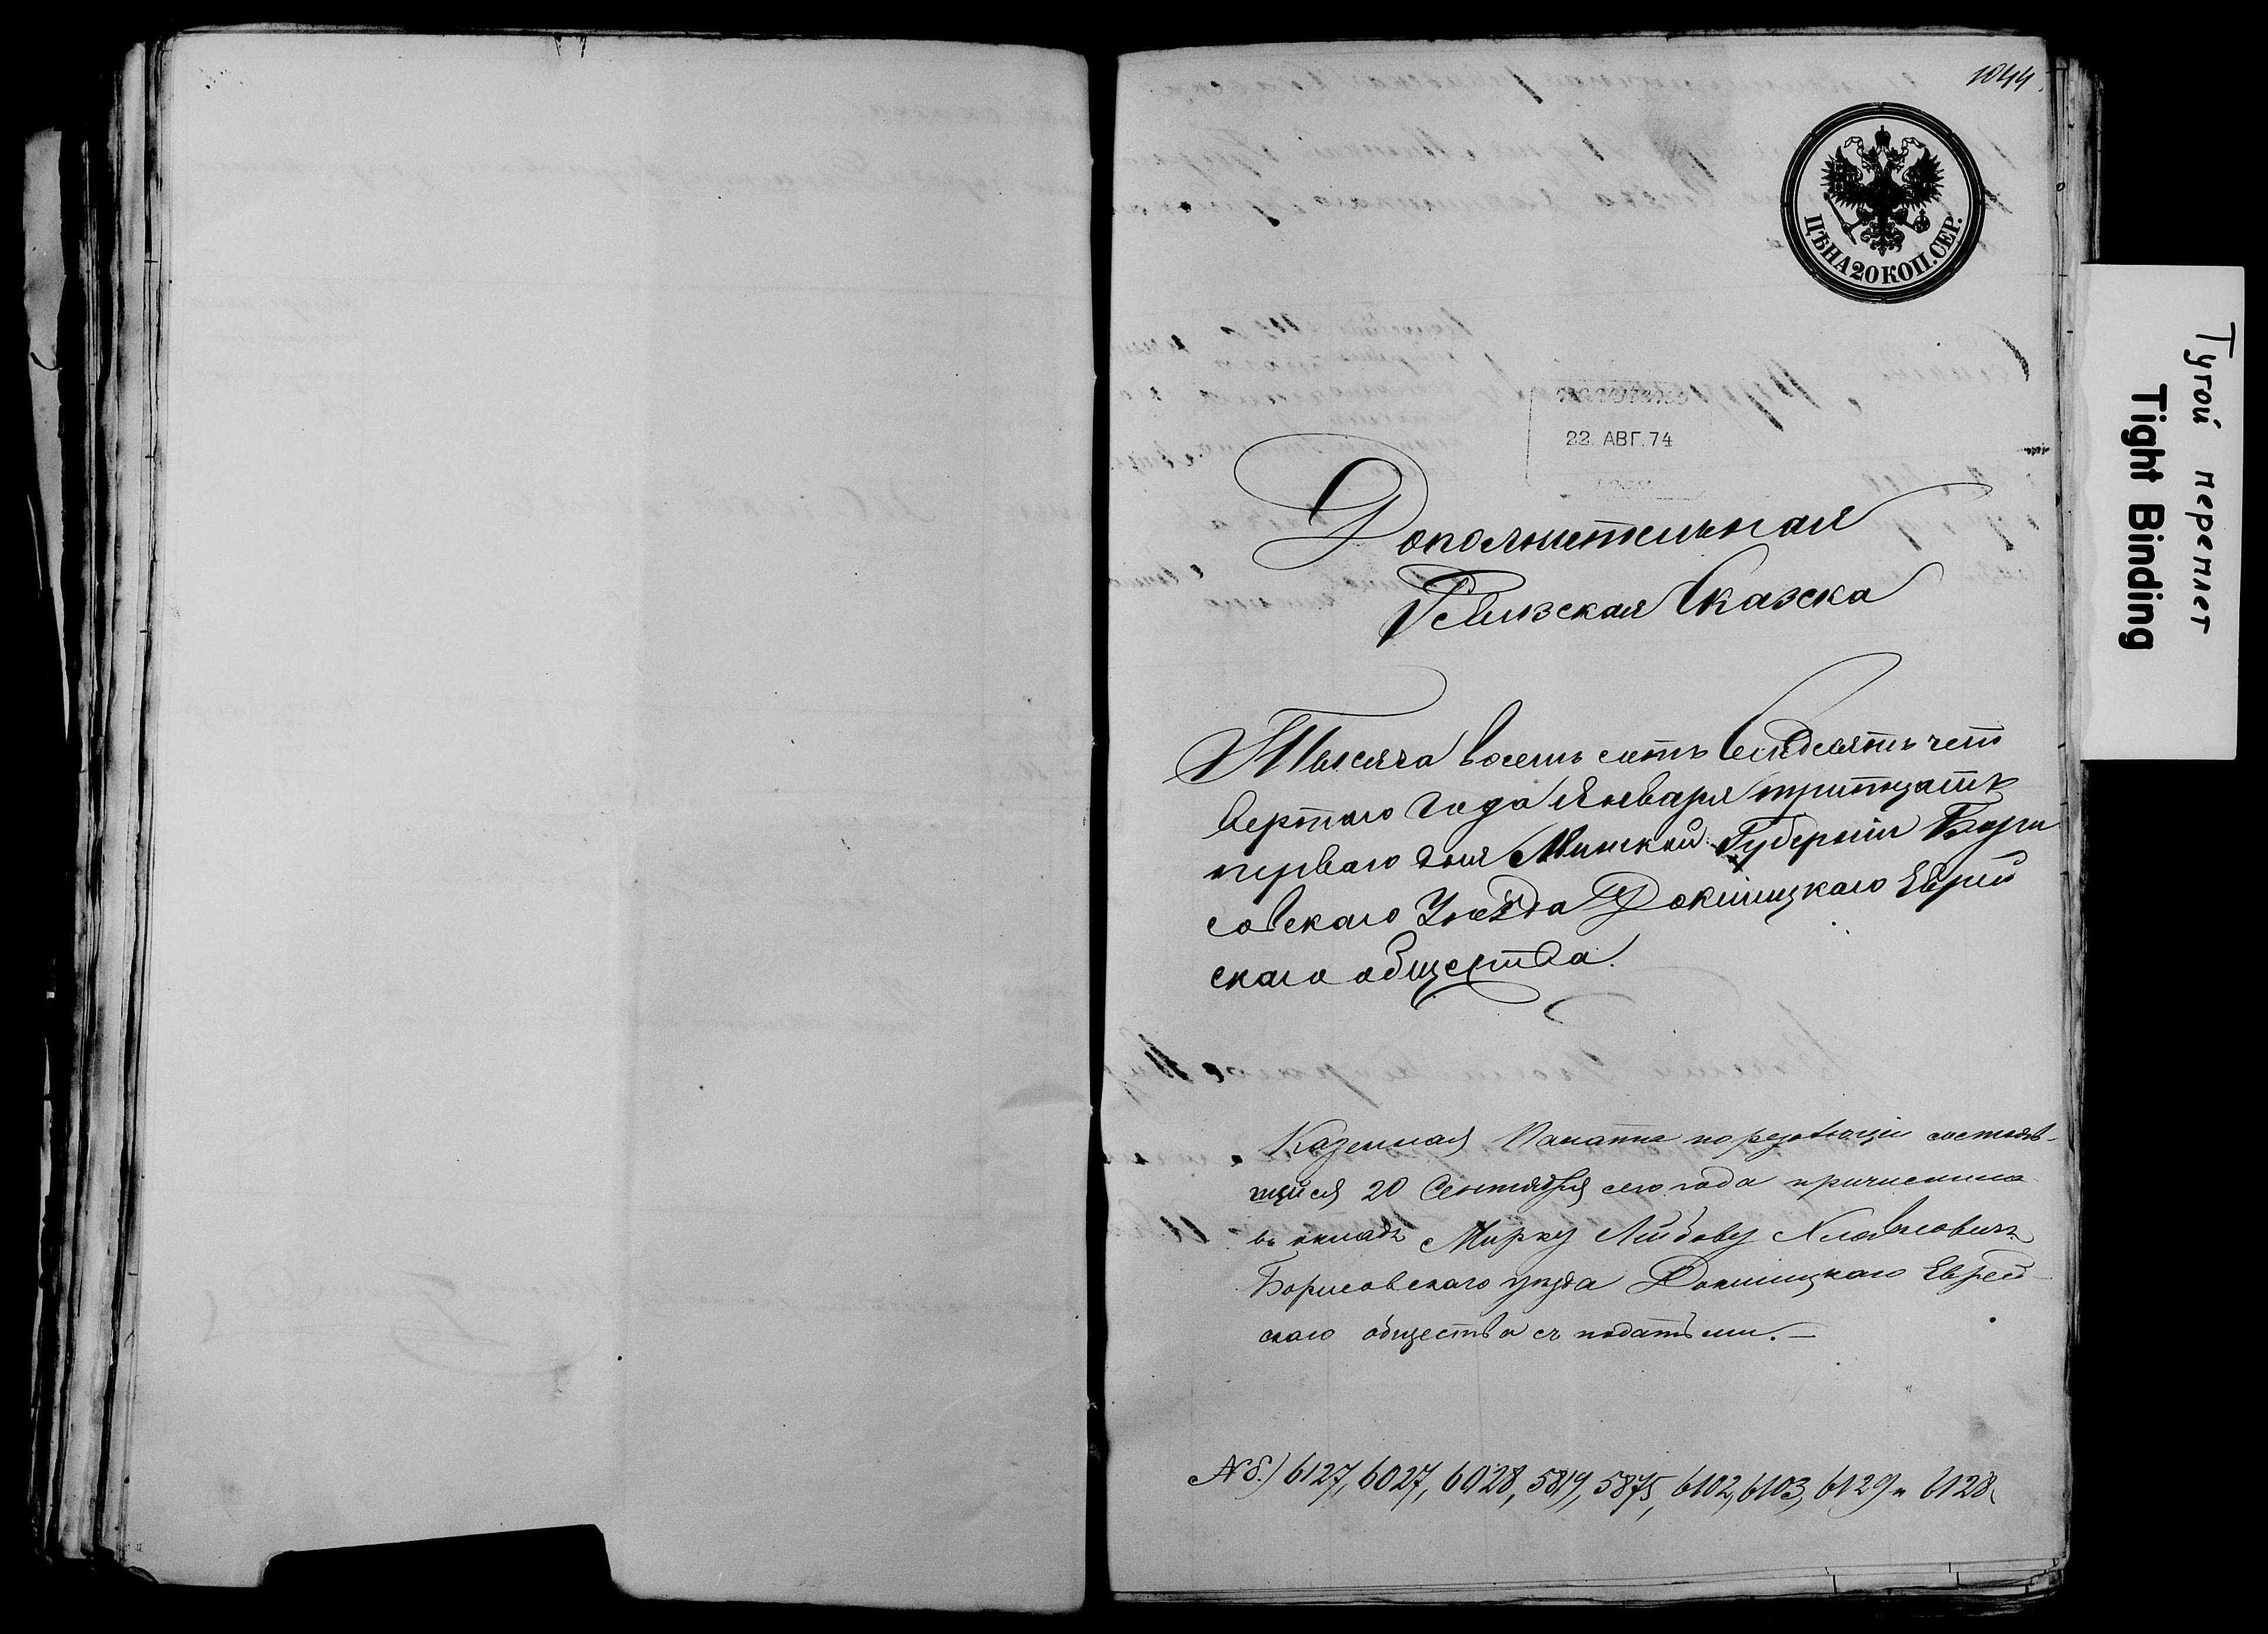 1044
ЦѢНА 20 КОП. СЕР.
22 АВГ. 74
Дополнительная
Ревизская Сказка
Тысяча восемь сотъ Семдесятъ чет
вертаго года Января тритцать
перваго дня Минской Губерніи Бори
совскаго Уѣзда Докшицкаго Еврей
скаго общества.
Казенная Палата по резолюціи состояв-
шейся 20 Сентября сего года причислила
въ окладъ Мирку Лейбову
Борисовскаго уѣзда Докшицкаго Еврей-
скаго общества съ податьми. —
№.) 6127, 6027, 6028, 5819, 5875, 6102, 6103, 6129 и 6128
Тугой переплет
Tight Binding